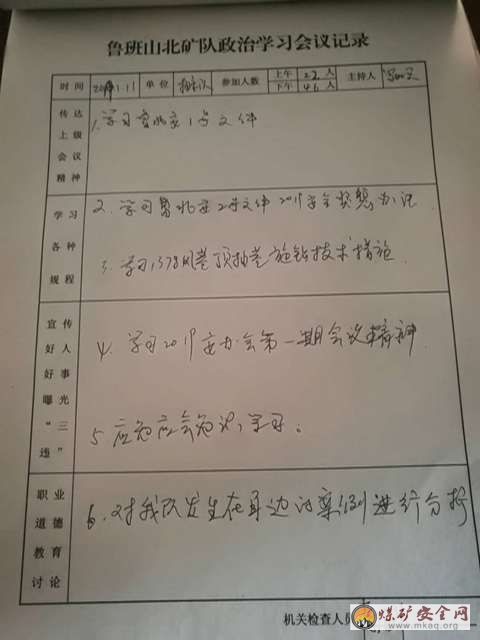 鲁班山北矿队政治学习会议记录
时间 2019.1.11 单位 参加人数 上午 22人 下午 46人 主持人
传达上级会议精神
1. 学习鲁北安1号文件
学习各种规程
2. 学习鲁北安2号文件 2019安全奖惩办法
3. 学习1378风巷顶抽巷施钻技术措施
宣传好人好事曝光“三违”
4. 学习2019安办会第一期会议精神
5 应知应会知识学习。
职业道德教育讨论
6. 对我队发生在身边的案例进行分析
机关检查人员
煤矿安全网
www.mkaq.org